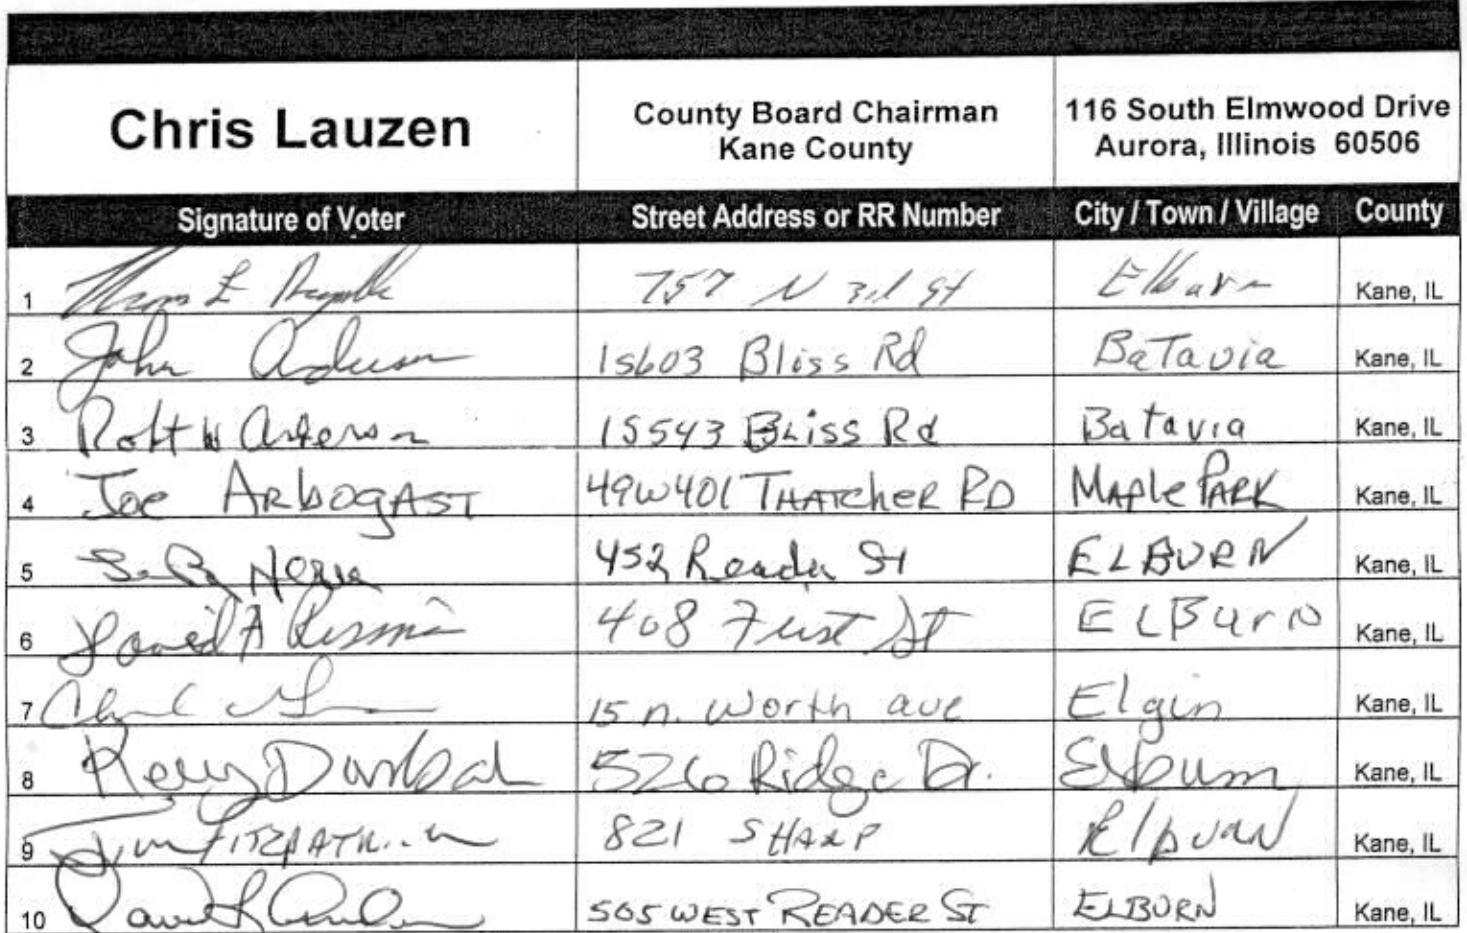 Chris Lauzen
County Board Chairman
Kane County
116 South Elmwood Drive
Aurora, Illinois 60506
Signature of Voter Street Address or RR Number City / Town / Village County
1 757 N 3rd St Elburn Kane, IL
2 John 15603 Bliss Rd BaTavia Kane, IL
3 Robt W Anderson 15543 BLiss Rd Batavia Kane, IL
4 Joe ARbOGAST 49W401 THATCheR RD MAPle PARK Kane, IL
5 452 Reader St ELBURN Kane, IL
6 David A 408 First St ELBurN Kane, IL
7 15 n. Worth ave Elgin Kane, IL
8 526 Ridge Dr. Elburn Kane, IL
9 Jim FITZPATRICK 821 SHARP ElbURN Kane, IL
10 David L 505 WEST READER ST ELBURN Kane, IL